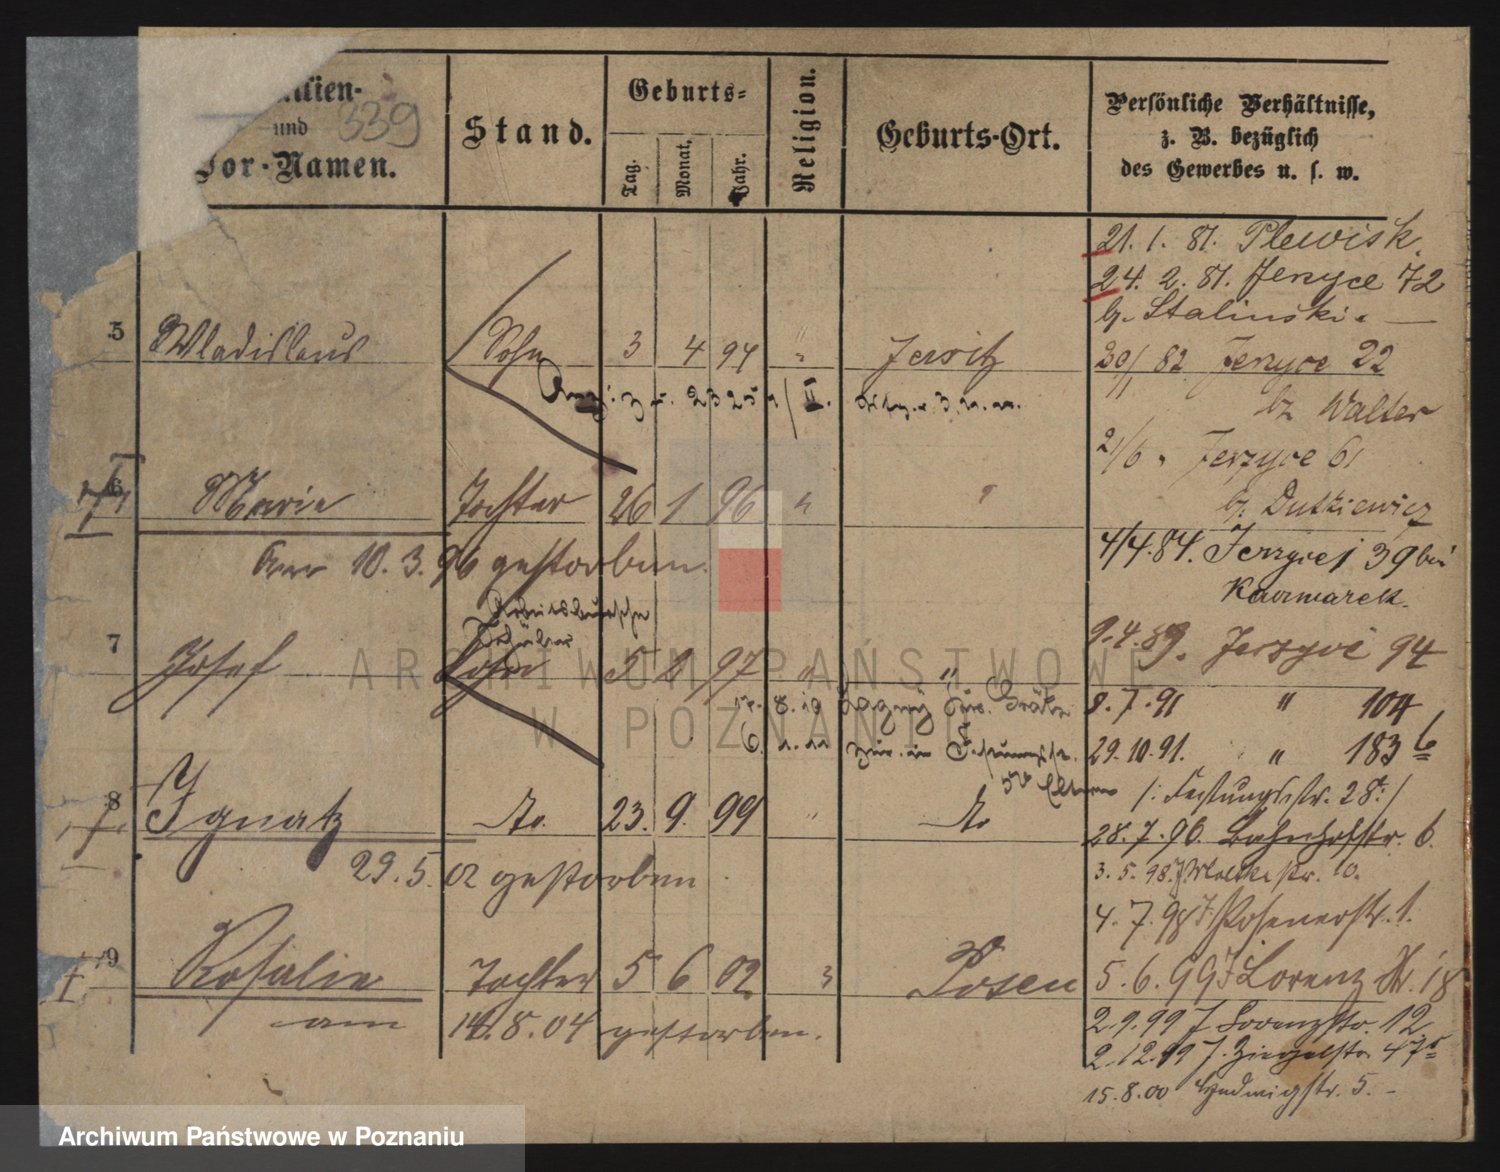 339
und
Vor-Namen.
Stand.
Geburts-
Tag.
Monat.
Jahr.
Religion.
Geburts-Ort.
Persönliche Verhältnisse,
z. B. bezüglich
des Gewerbes u. s. w.
21. 1. 81. Plewisk.
24. 2. 81. Jerzyce 72
b. Stalinski. —
5 Wladislaus Sohn 3 4 94 " Jersitz
20/1 82 Jerzyce 22
bz Walter
21/6 " Jerzyce 61
b. Dutkiewicz
6 Marie Tochter 26 1 96 " "
am 10. 3. 96 gestorben.
4/4. 84. Jerzyce 39 bei
Kaczmarek.
Arbeitsbursche
7 Josef Sohn 5 2 97 " "
9. 4. 89. Jerzyce 94
8. 7. 91 " 104
6. 1. 11 zur. in Festungsstr.
29. 10. 91. " 183 b
Eltern
/: Festungsstr. 28 :/
8 Ignatz do. 23. 9. 99 " do
28. 7. 96. Bahnhofstr. 6.
29. 5. 02 gestorben
3. 5. 98. J Moltkestr. 10.
4. 7. 98 J. Posenerstr. 1.
9 Rosalie Tochter 5 6 02 " Posen
5. 6. 99 J Lorenz Str. 18
am 14. 8. 04 gestorben.
2. 9. 99 J. Lorenzstr. 12.
2. 12. 99 J. Ziegelstr. 47
15. 8. 00 Hedwigstr. 5. -
ARCHIWUM PAŃSTWOWE
W POZNANIU
Archiwum Państwowe w Poznaniu